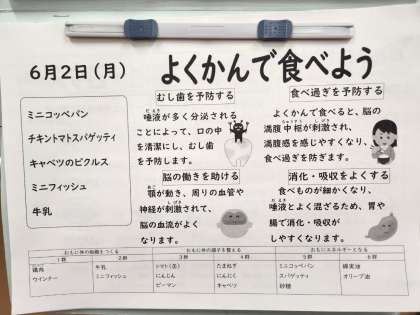 6月2日(月)
よくかんで食べよう
ミニコッペパン
チキントマトスパゲッティ
キャベツのピクルス
ミニフィッシュ
牛乳
むし歯を予防する
だえき
唾液が多く分泌される
ことによって、口の中
を清潔にし、むし歯
を予防します。
食べ過ぎを予防する
よくかんで食べると、脳の
満腹中枢が刺激され、
満腹感を感じやすくなり、
食べ過ぎを防ぎます。
脳の働きを助ける
あご
顎が動き、周りの血管や
しげき
神経が刺激されて、
脳の血流がよく
なります。
消化・吸収をよくする
食べものが細かくなり、
だえき
唾液とよく混ざるため、胃や
腸で消化・吸収が
しやすくなります。
おもに体の組織をつくる
おもに体の調子を整える
おもにエネルギーとなる
1群 2群 3群 4群 5群 6群
鶏肉 牛乳 トマト(缶) たまねぎ ミニコッペパン 綿実油
ウインナー ミニフィッシュ にんじん にんにく スパゲッティ オリーブ油
ピーマン キャベツ 砂糖